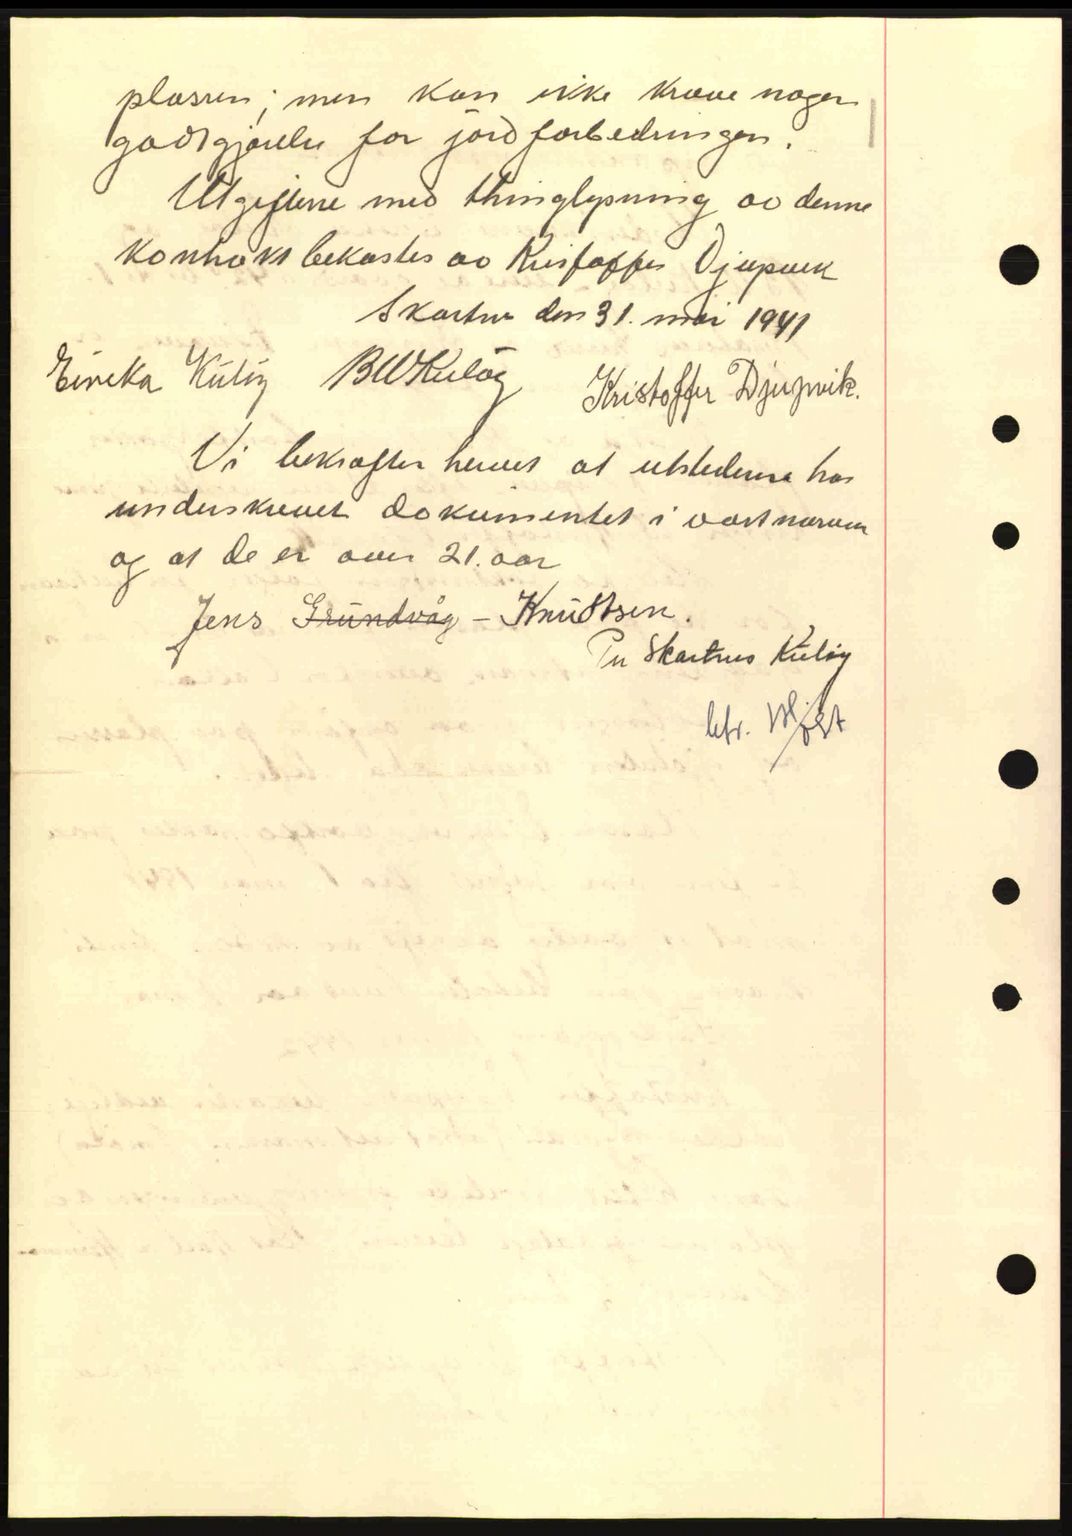 plassen; men kan ikke kræve nogen
godtgjørelse for jordforbedringen.
Utgiftene med thinglysning av denne
kontrakt bekostes av Kristoffer Djupvik
Skartnes den 31. mai 1941
Eineka Kuløy BWKuløy Kristoffer Djupvik.
Vi bekrefter herved at utstederne har
underskrevet dokumentet i vort nærvær
og at de er over 21. aar
Jens Grundvåg - Knutsen.
Per Skartnes Kuløy